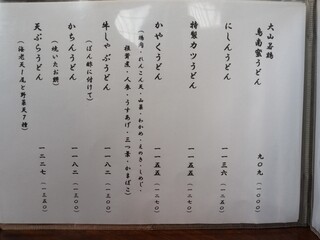 大山若鶏
鳥南蛮うどん 九〇九(一〇〇〇)
にしんうどん 一一三六(一二五〇)
特製カツうどん 一一五五
かやくうどん 一一五五(一二七〇)
(鶏肉・れんこん天・山菜・わかめ・えのき・しめじ・
椎茸煮・人参・うすあげ・三つ葉・かまぼこ)
牛しゃぶうどん 一一八二(一三〇〇)
(ぽん酢に付けて)
かちんうどん 一一八二(一三〇〇)
(焼いたお餅)
天ぷらうどん 一二二七(一三五〇)
(海老天1尾と野菜天7種)